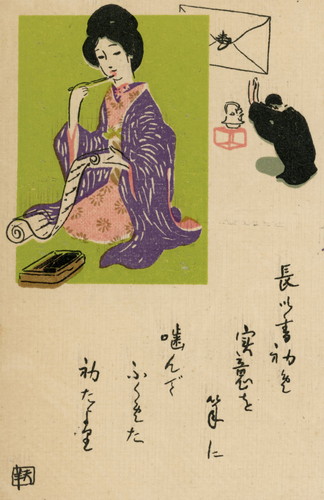 長い書初
実意を
筆に
噛んで
ふくめた
初たより